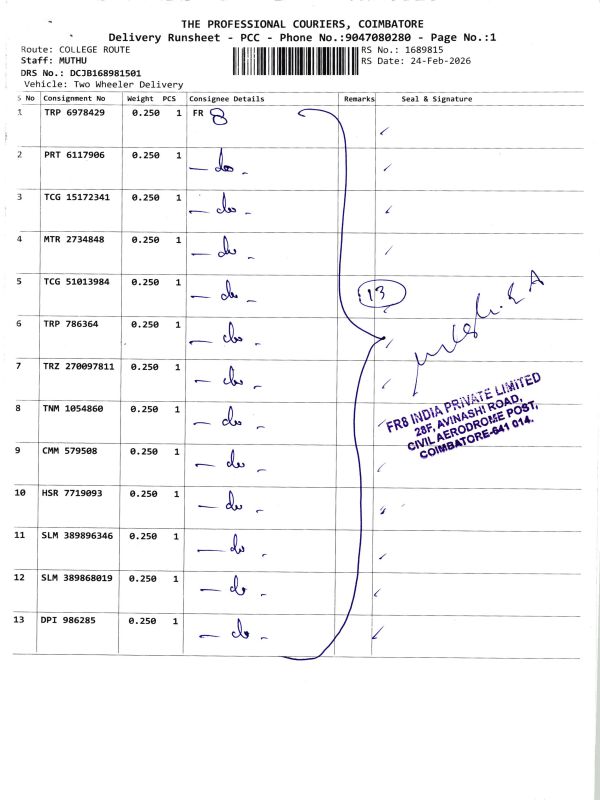 THE PROFESSIONAL COURIERS, COIMBATORE
Delivery Runsheet - PCC - Phone No.:9047080280 - Page No.:1
Route: COLLEGE ROUTE RS No.: 1689815
Staff: MUTHU RS Date: 24-Feb-2026
DRS No.: DCJB168981501
Vehicle: Two Wheeler Delivery
S No Consignment No Weight PCS Consignee Details Remarks Seal & Signature
1 TRP 6978429 0.250 1 FR 8
2 PRT 6117906 0.250 1 - do -
3 TCG 15172341 0.250 1 - do -
4 MTR 2734848 0.250 1 - do -
5 TCG 51013984 0.250 1 - do -
13
6 TRP 786364 0.250 1 - do -
7 TRZ 270097811 0.250 1 - do -
8 TNM 1054860 0.250 1 - do -
FR8 INDIA PRIVATE LIMITED
28F, AVINASHI ROAD,
CIVIL AERODROME POST,
COIMBATORE-641 014.
9 CMM 579508 0.250 1 - do -
10 HSR 7719093 0.250 1 - do -
11 SLM 389896346 0.250 1 - do -
12 SLM 389868019 0.250 1 - do -
13 DPI 986285 0.250 1 - do -